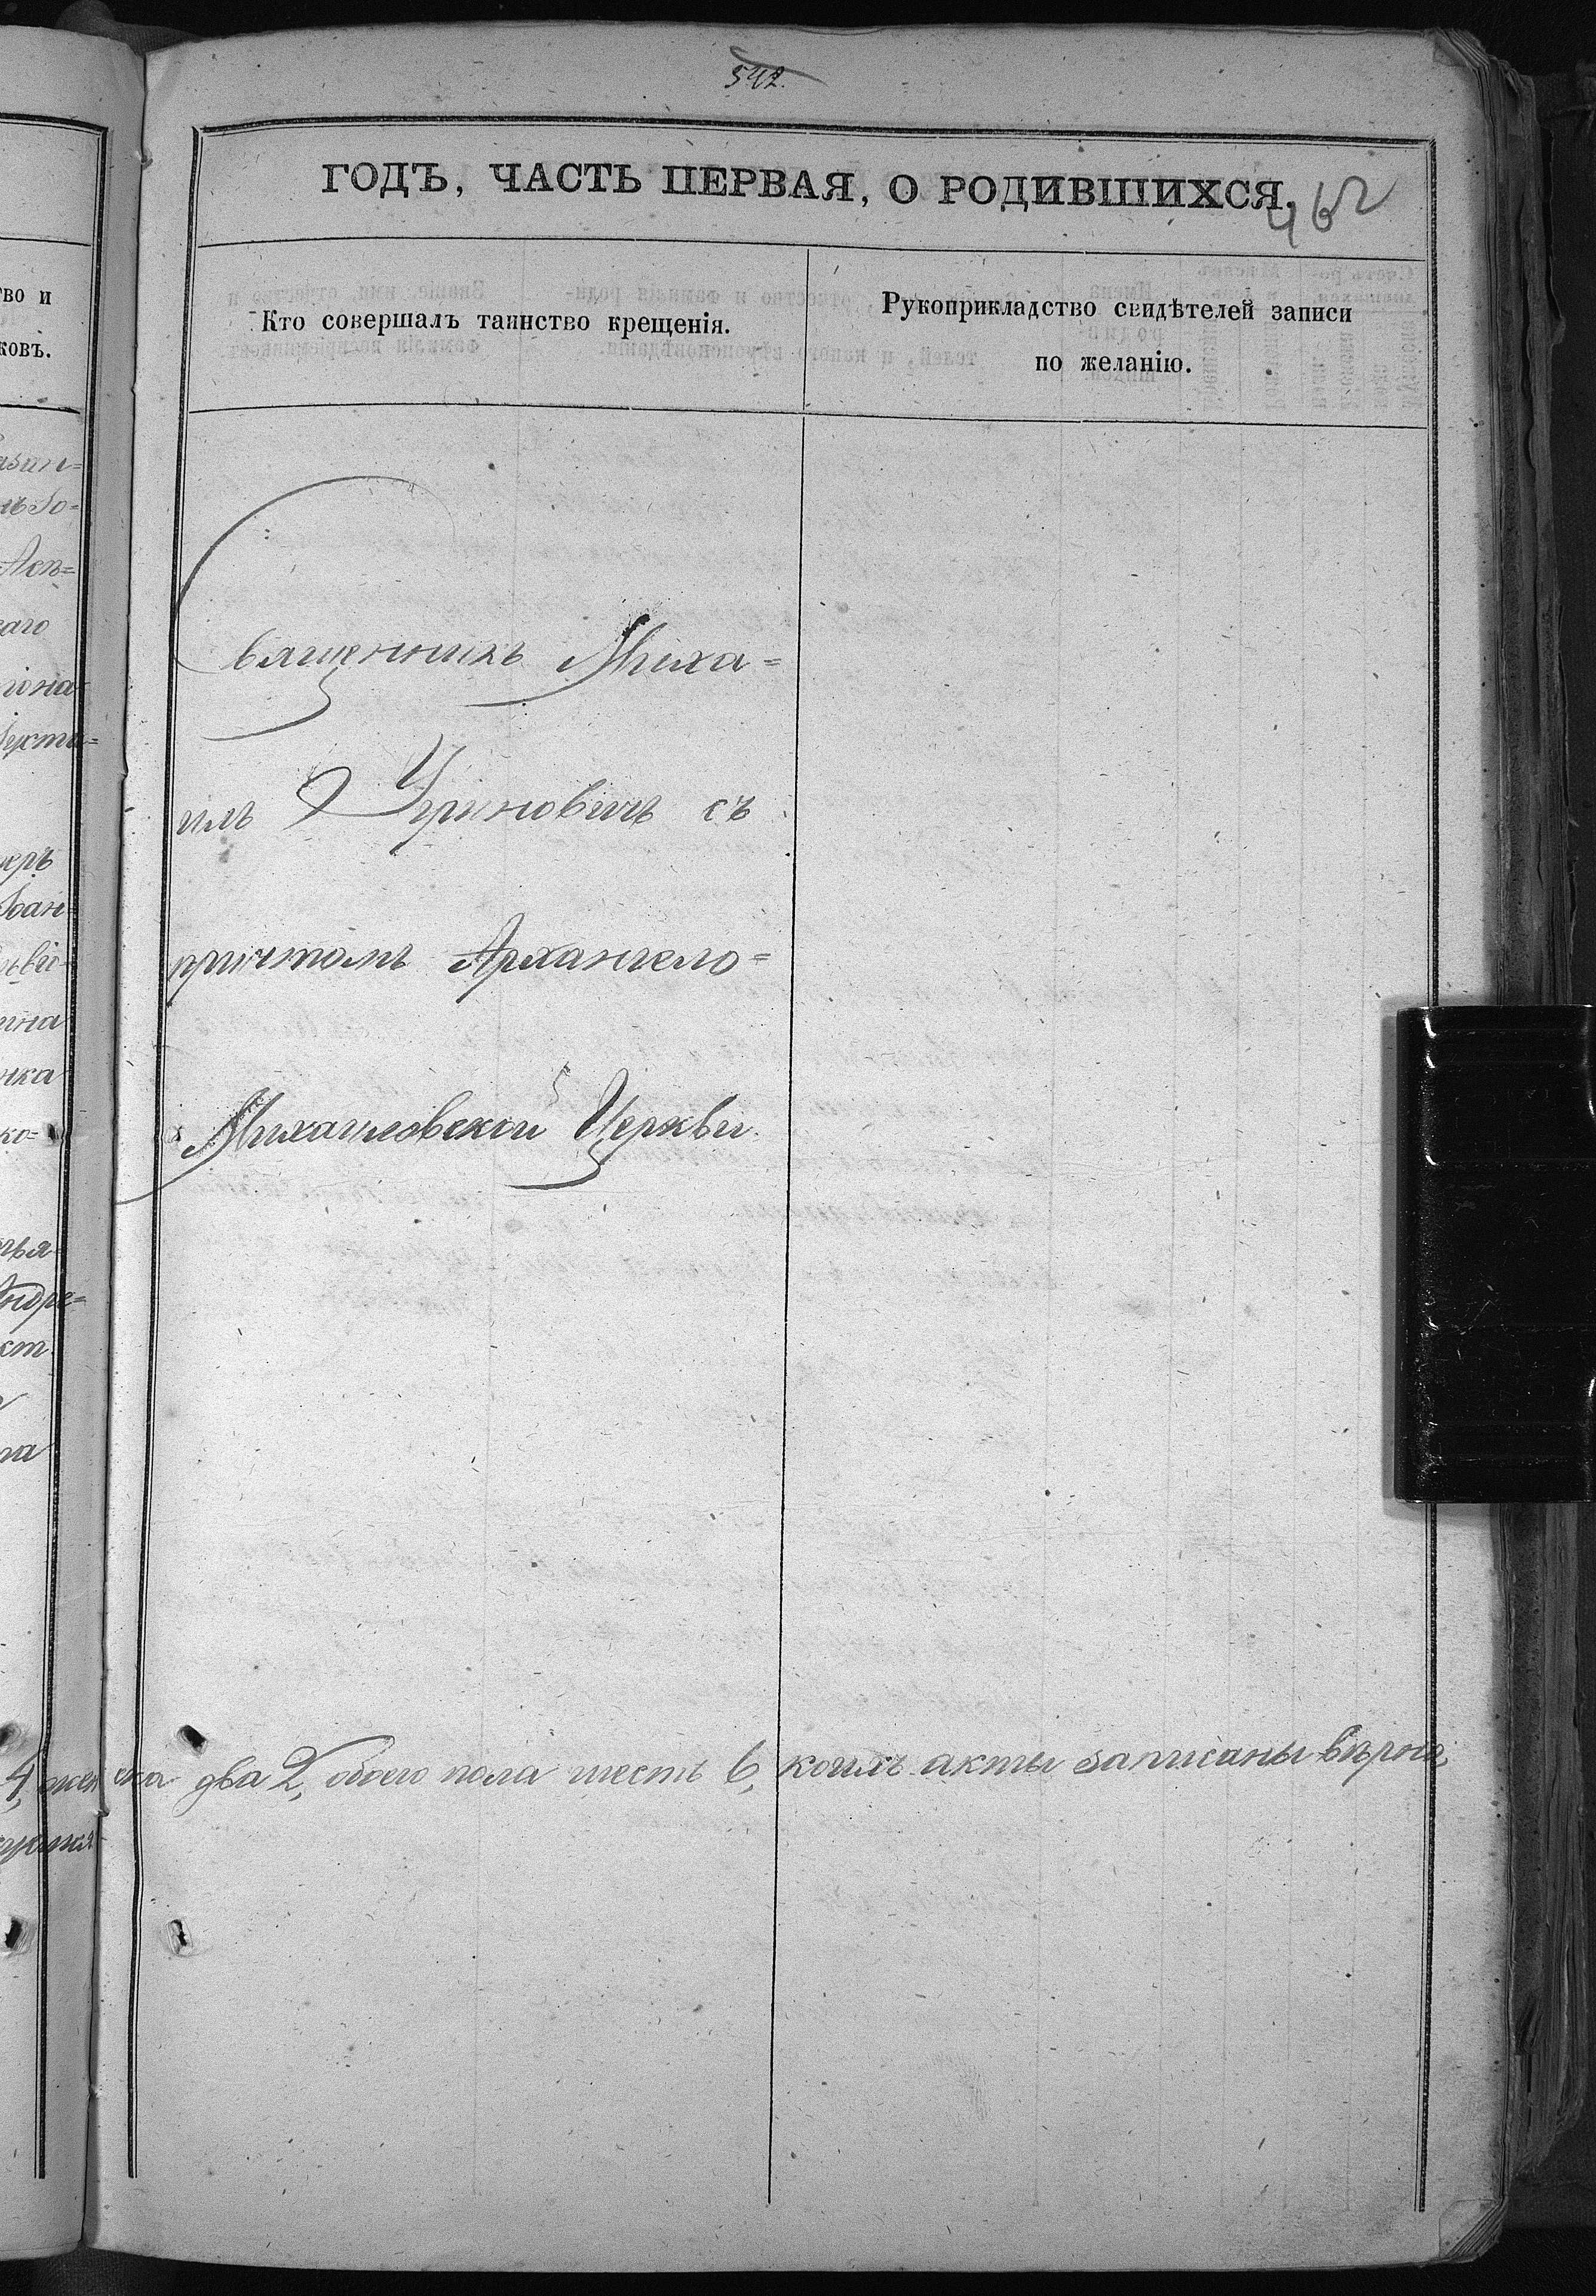 542.
ГОДЪ, ЧАСТЬ ПЕРВАЯ, О РОДИВШИХСЯ.
462
тво и
ковъ.
Кто совершалъ таинство крещенія.
Рукоприкладство свидѣтелей записи
по желанію.
Священникъ Миха=
илъ Угриновичъ съ
причтомъ Архангело=
Михаиловской Церкви.
4, женска два 2, обоего пола шесть 6, коихъ акты записаны вѣрно,